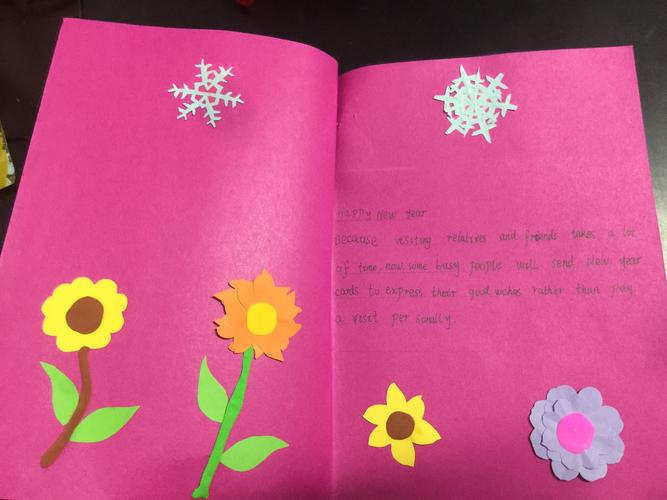 Happy New Year
Because visiting relatives and friends takes a lot
of time, now, some busy people will send New Year
cards to express their good wishes rather than
a visit per sonally.